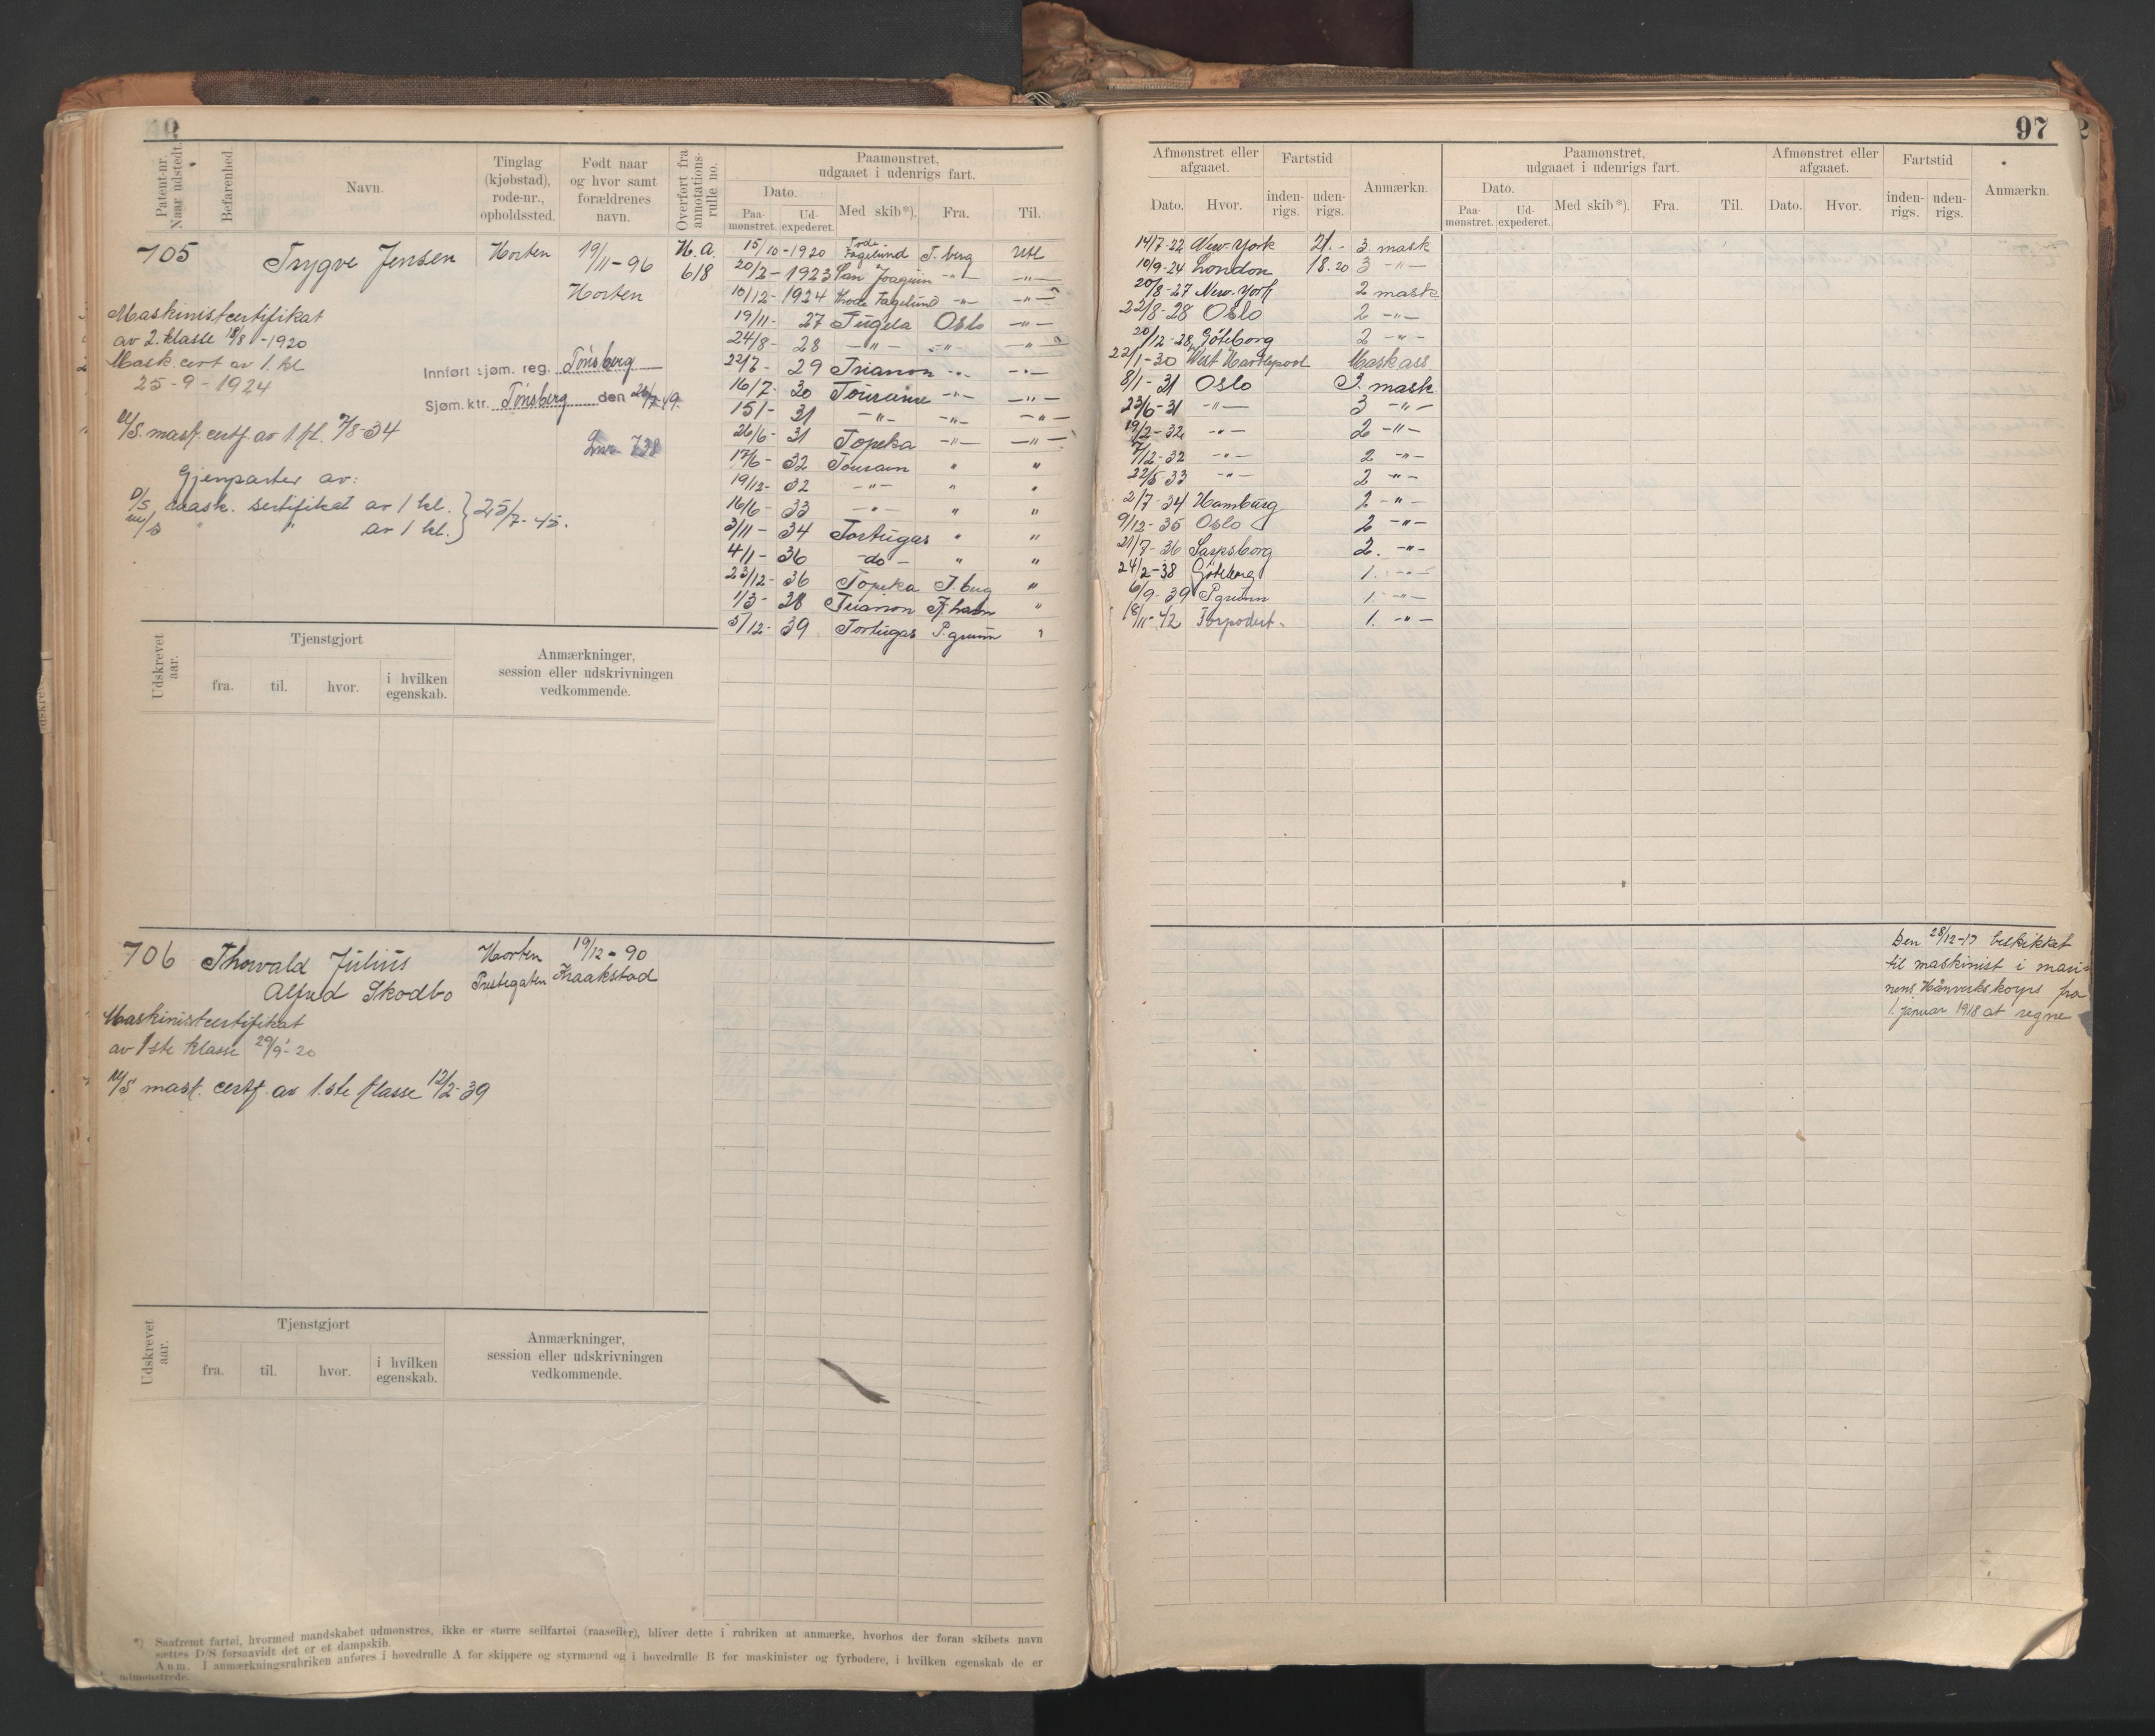 97
Patent-nr. Naar udstedt.
Befarenhed.
Navn.
Tinglag (kjøbstad), rode-nr., opholdssted.
Født naar og hvor samt forældrenes navn.
Overført fra annotations-rulle no.
Paamønstret, udgaaet i udenrigs fart.
Dato.
Paa-mønstret.
Ud-expederet.
Med skib*).
Fra.
Til.
Afmønstret eller afgaaet.
Dato.
Hvor.
Fartstid
inden-rigs.
uden-rigs.
Anmærkn.
Paamønstret, udgaaet i udenrigs fart.
Dato.
Paa-mønstret.
Ud-expederet.
Med skib*).
Fra.
Til.
Afmønstret eller afgaaet.
Dato.
Hvor.
Fartstid
inden-rigs.
uden-rigs.
Anmærkn.
705 Trygve Jensen Horten 19/11-96 Horten H.A. 618
Maskinistcertifikat
av 2. klasse 18/8-1920
Mask. cert av 1. kl
25-9-1924
Innført sjøm. reg. Tønsberg
Sjøm. ktr. Tønsberg den
M/S. mask. certf. av 1. kl. 7/8-34
Lnr. 728
Gjenparter av:
D/S mask. sertifikat av 1 kl. } 25/7-45.
M/S " " av 1 kl.
15/10-1920 Fagelund T.berg utl 14/7-22 New-York 21.- 3. mask
20/2-1923 San Joaquin -"- -"- 10/9-24 London 18.20 3 -"-
10/12-1924 Fagelund -"- -"- 20/8-27 New-York 2 mask
19/11-27 Tugela Oslo -"- 22/8-28 Oslo 2 -"-
24/8-28 -"- -"- -"- 20/12-28 Göteborg 2 -"-
22/7-29 Trianon -"- -"- 22/1-30 West Hartlepool Mask ass
16/7-30 Touraine -"- -"- 8/1-31 Oslo 3. mask
15/1-31 -"- -"- -"- 23/6-31 -"- 3 -"-
26/6-31 Topeka -"- -"- 19/2-32 -"- 2 -"-
17/6-32 Tourain " " 7/12-32 -"- 2 -"-
19/12-32 -"- " " 22/5-33 -"- 2 -"-
16/6-33 -"- " " 2/7-34 Hamburg 2 -"-
3/11-34 Tortugas " " 9/12-35 Oslo 2 -"-
4/1-36 -do- " " 21/7-36 Sarpsborg 2. -"-
23/12-36 Topeka " 24/2-38 Göteborg 1. -"-
1/3-38 Trianon " 6/9-39 P.grunn 1. -"-
5/12-39 Tortugas P.grunn " 18/11-42 Torpedert. 1. -"-
Udskrevet aar.
Tjenstgjort
fra.
til.
hvor.
i hvilken egenskab.
Anmærkninger, session eller udskrivningen vedkommende.
706 Thorvald Julius Alfred Skodbo Horten Prestegaten 19/12-90 Kraakstad
Maskinistcertifikat
av 1ste klasse 29/9-20
M/S mask. certf. av 1.ste klasse 12/2-39
Den 28/12-17 beskikket
til maskinist i mari-
nens Hånverkskorps fra
1. januar 1918 at regne
Udskrevet aar.
Tjenstgjort
fra.
til.
hvor.
i hvilken egenskab.
Anmærkninger, session eller udskrivningen vedkommende.
*) Saafremt fartøi, hvormed mandskabet udmønstres, ikke er større seilfartøi (raaseiler), bliver dette i rubriken at anmærke, hvorhos der foran skibets navn
sættes D/S forsaavidt det er et dampskib.
Anm. I anmærkningsrubriken anføres i hovedrulle A for skippere og styrmænd og i hovedrulle B for maskinister og fyrbødere, i hvilken egenskab de er
udmønstrede.